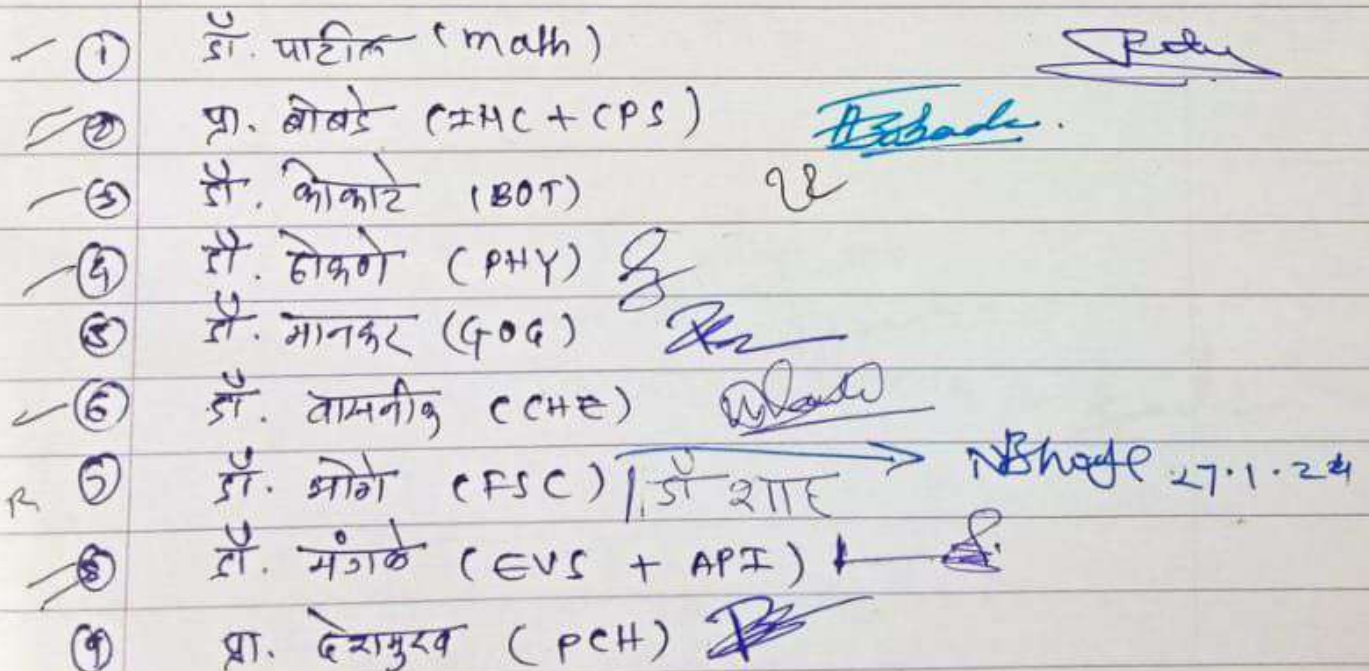 ① डॉ. पाटील (math)
② प्रा. बोबडे (IMC + CPS) ABobade.
③ डॉ. कोकाटे (BOT)
④ डॉ. ढोकणे (PHY)
⑤ डॉ. मानकर (GOG)
⑥ डॉ. वासनीक (CHE)
R ⑦ डॉ. भोगे (FSC) / डॉ शाह → NBhoge 27.1.24
⑧ डॉ. मंगळे (EVS + API)
⑨ प्रा. देशमुख (PCH)